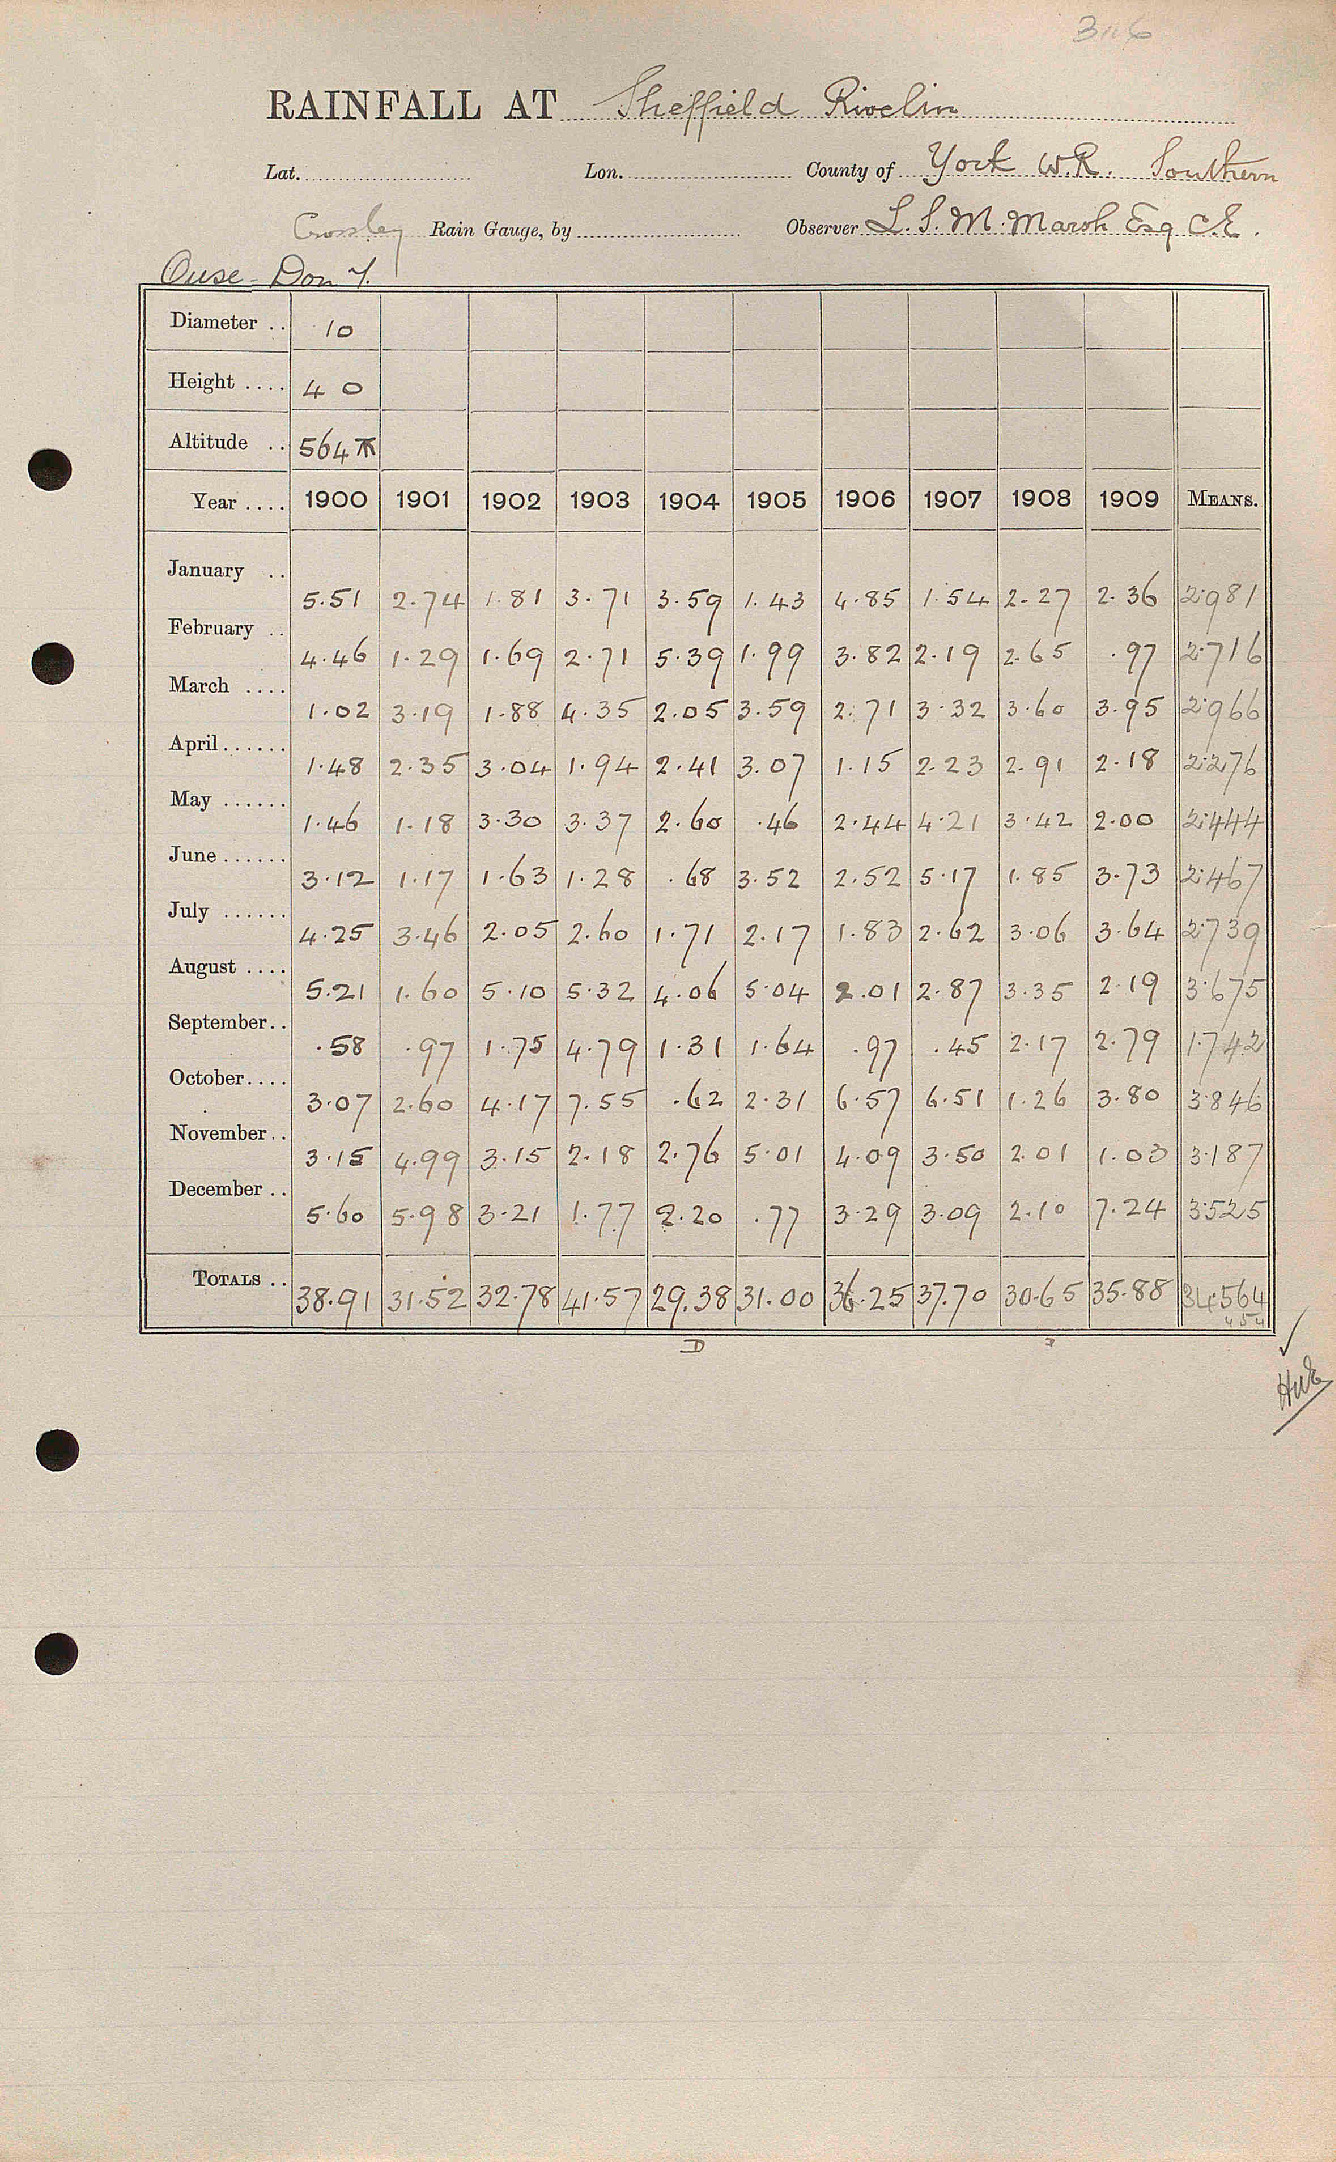 RAINFALL AT Sheffield Rivelin
Lat. Lon. County of York W.R. Southern
Crossley Rain Gauge, by Observer L. S. M. Marsh Esq C.E.
Ouse - Don
Diameter .. 10
Height .... 4 0
Altitude .. 564
Year .... 1900 1901 1902 1903 1904 1905 1906 1907 1908 1909 MEANS.
January .. 5.51 2.74 1.81 3.71 3.59 1.43 4.85 1.54 2.27 2.36 2.981
February .. 4.46 1.29 1.69 2.71 5.39 1.99 3.82 2.19 2.65 .97 2.716
March .... 1.02 3.19 1.88 4.35 2.05 3.59 2.71 3.32 3.60 3.95 2.966
April ...... 1.48 2.35 3.04 1.94 2.41 3.07 1.15 2.23 2.91 2.18 2.276
May ...... 1.46 1.18 3.30 3.37 2.60 .46 2.44 4.21 3.42 2.00 2.444
June ...... 3.12 1.17 1.63 1.28 .68 3.52 2.52 5.17 1.85 3.73 2.467
July ...... 4.25 3.46 2.05 2.60 1.71 2.17 1.83 2.62 3.06 3.64 2.739
August .... 5.21 1.60 5.10 5.32 4.06 5.04 2.01 2.87 3.35 2.19 3.675
September .. .58 .97 1.75 4.79 1.31 1.64 .97 .45 2.17 2.79 1.742
October .... 3.07 2.60 4.17 7.55 .62 2.31 6.57 6.51 1.26 3.80 3.846
November .. 3.15 4.99 3.15 2.18 2.76 5.01 4.09 3.50 2.01 1.03 3.187
December .. 5.60 5.98 3.21 1.77 2.20 .77 3.29 3.09 2.10 7.24 3.525
TOTALS .. 38.91 31.52 32.78 41.57 29.38 31.00 36.25 37.70 30.65 35.88 34.564
D